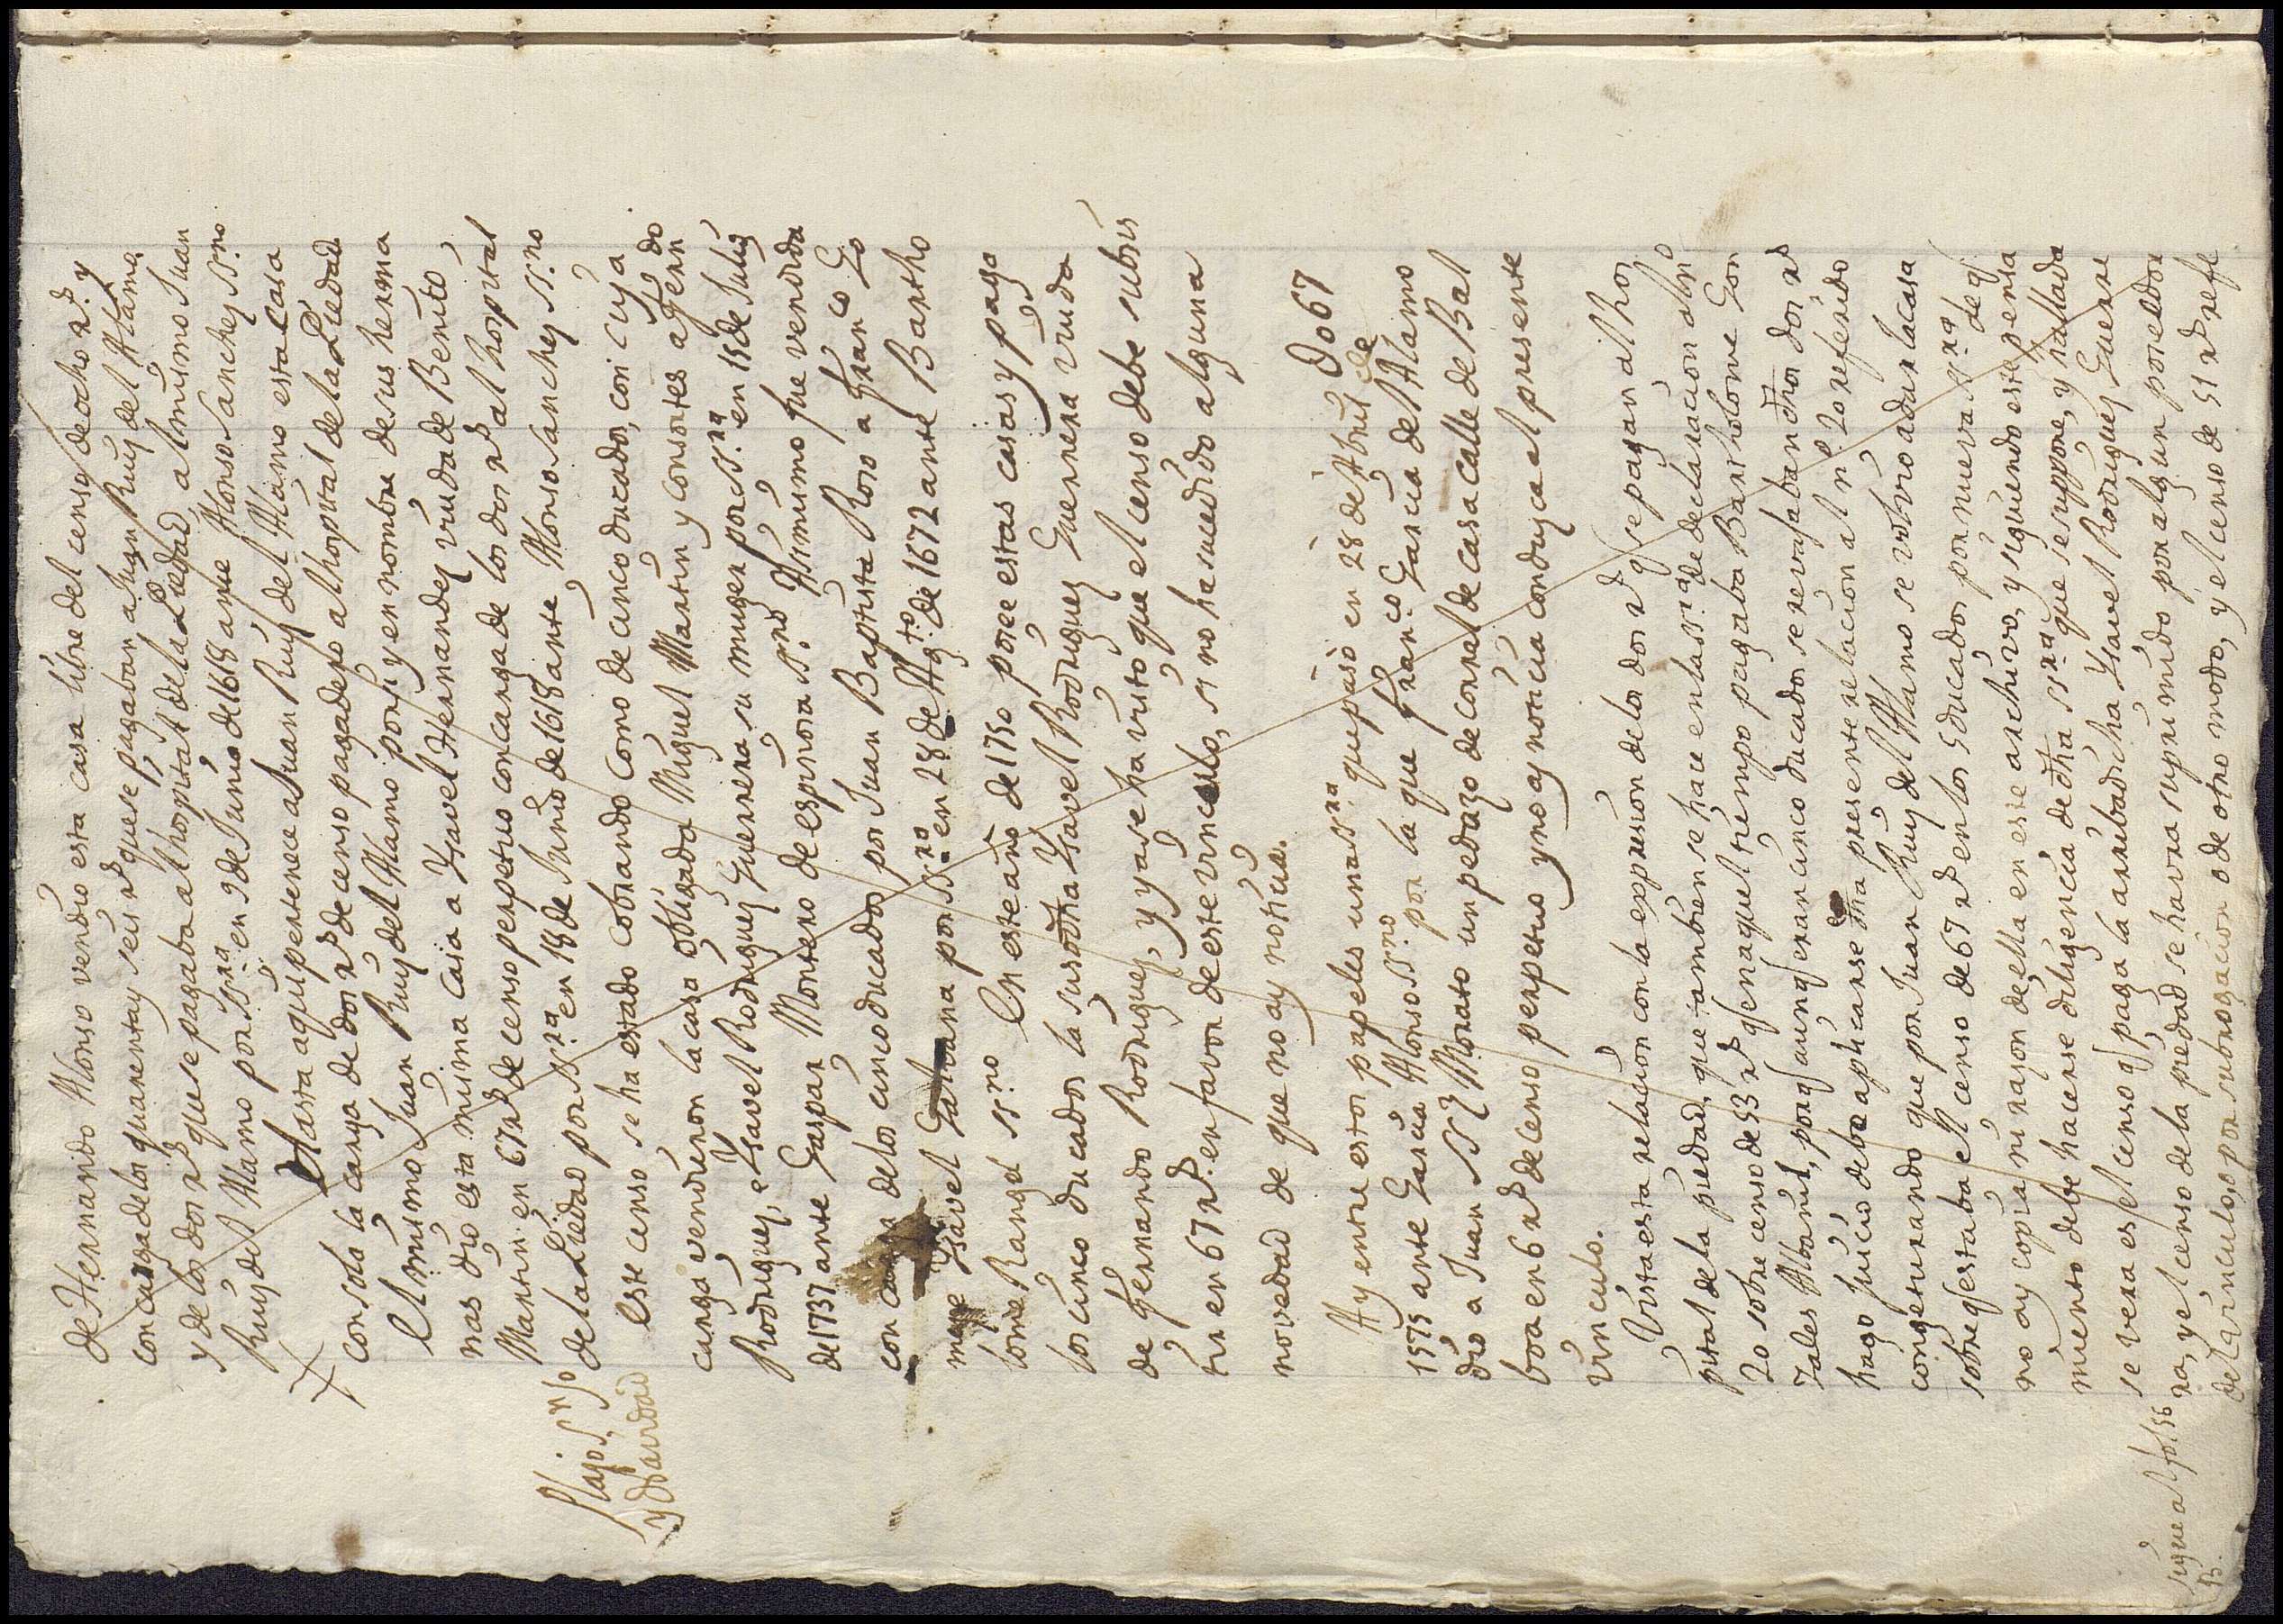 de Hernando Alonso vendio esta casa libre del censo de ocho rs. y
con carga de los quarenta y seis rs que se pagaban a Juan Ruiz del Alamo,
y de los dos rs que se pagaba al hospital de la Piedad, al mismo Juan
Ruiz del Alamo por ssra en 9 de Junio de 1618 ante Alonso Sanchez ssno
Hasta aqui pertenece a Juan Ruiz del Alamo esta casa
con sola la carga de dos rs de censo pagadero al hospital de la Piedad
El mismo Juan Ruiz del Alamo por si y en nombre de sus herma
nas dio esta misma casa a Ysavel Hernandez viuda de Benito
Martin en 67 rs de censo perpetuo con carga de los dos rs al hospital
de la Piedad por ssra en 18 de Junio de 1618 ante Alonso Sanchez ssno
Este censo se ha estado cobrando como de cinco ducados, con cuya
carga vendieron la casa obligada Miguel Martin y consortes a Fern.do
Rodriguez, e Ysavel Rodriguez Guerrera su muger por ssra en 15 de Julio
de 1737 ante Gaspar Montero de espinosa ssno Asimismo fue vendida
con carga de los cinco ducados por Juan Baptista Roxo a Franco Go
Ysavel Galvana por ssra en 28 de Agto de 1672 ante Bartho
lome Rangel ssno En este año de 1750 posee estas casas y paga
los cinco ducados la susodha Ysavel Rodriguez Guerrera viuda
de Fernando Rodriguez, y ya se ha visto que el censo debe subsis
tir en 67 rs. en favor de este vinculo, si no ha sucedido alguna
novedad de que no ay noticia.
Do 67
Ay entre estos papeles una ssra que paso en 28 de Abril de
1575 ante Garcia Alonso ssno por la que Franco Garcia del Alamo
dio a Juan Morato un pedazo de corral de casa calle de Bal
boa en 6 rs de censo perpetuo y no ay noticia conduzca al presente
vinculo.
Vista esta relacion con la expresion de los dos rs q se pagan al hos
pital de la piedad, que tambien se hace en la ssra de declaracion al no
20 sobre censo de 53 rs q en aquel tiempo pagaba Bartholome Gon
zales Albañil, porq aunq eran cinco ducados se revasaban dhos dos rs
hago juicio debe aplicarse dha presente relacion al no 20 referido
congeturando que por Juan Ruiz del Alamo se volvio a dar la casa
sobre q estaba el censo de 67 rs en los 5 ducados por nueva ssra de q
no ay copia ni rason de ella en este archivo, y siguiendo este pensa
miento debe hacerse diligencia de dha ssra que se suppone, y hallada
se vera es el censo q paga la arriba dicha Ysavel Rodriguez Guerre
ra, y el censo de la piedad se havra suprimido por algun poseedor
del vinculo, o por subrogacion o de otro modo, y el censo de 51 rs refe
sigue al fol. 56
B.